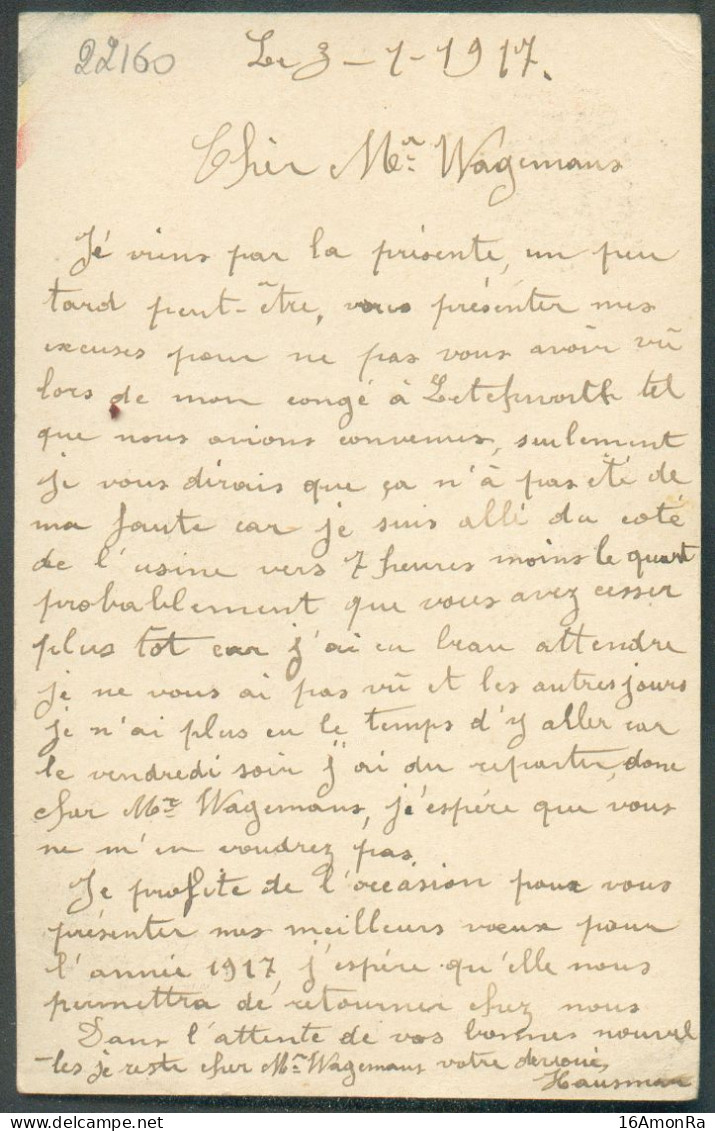 22160
Le 3-1-1917.
Cher Mr Wagemans
Je viens par la présente, un peu
tard peut-être, vous présenter mes
excuses pour ne pas vous avoir vû
lors de mon congé à Letchworth tel
que nous avions convenus, seulement
je vous dirais que ça n'à pas été de
ma faute car je suis allé du coté
de l'usine vers 7 heures moins le quart
probablement que vous avez cesser
plus tot car j'ai eu beau attendre
je ne vous ai pas vû et les autres jours
je n'ai plus eu le temps d'y aller car
le vendredi soir j'ai du repartir, donc
cher Mr Wagemans, j'espére que vous
ne m'en voudrez pas.
Je profite de l'occasion pour vous
présenter mes meilleurs vœux pour
l'année 1917, j'espére qu'elle nous
permettra de retourner chez nous
Dans l'attente de vos bonnes nouvel
-les je reste cher Mr Wagemans votre devoué
Hausman
16AmonRa